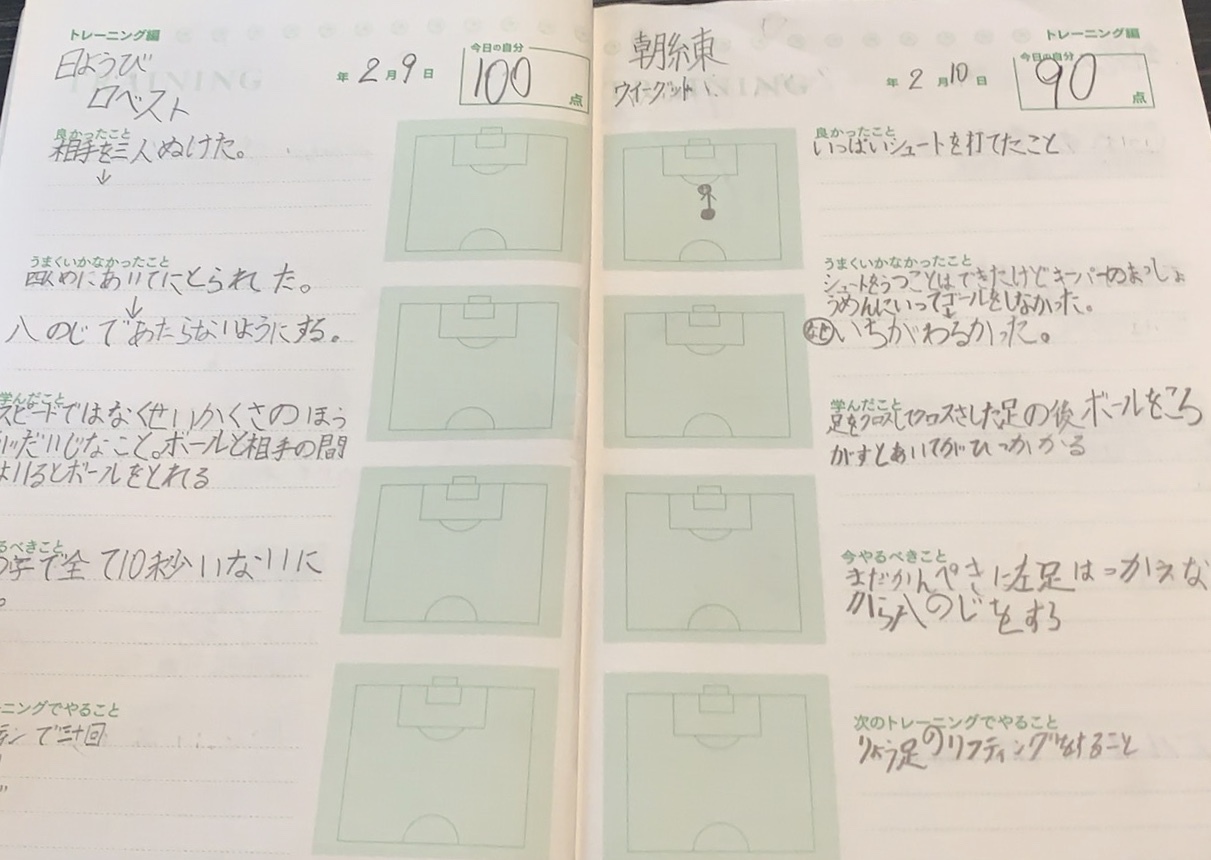 トレーニング編
日ようび
ロベスト
年 2月 9日
今日の自分
100点
良かったこと
相手を三人ぬけた。
↓
うまくいかなかったこと
四人めにあいてにとられた。
↓
八のじであたらないようにする。
学んだこと
スピードではなくせいかくさのほう
だいじなこと。ボールと相手の間
はいるとボールをとれる
るべきこと
の字で全て10秒いないに
。
ニングでやること
で三十回
トレーニング編
朝糸東
年 2月 10日
今日の自分
90点
良かったこと
いっぱいシュートを打てたこと
うまくいかなかったこと
シュートをうつことはできたけどキーパーのまっしょ
うめんにいってゴールをしなかった。
いちがわるかった。
学んだこと
足をクロスしてクロスさした足の後ボールをころ
がすとあいてがひっかかる
今やるべきこと
まだかんぺきに左足はつかえな
から八のじをする
次のトレーニングでやること
りょう足のリフティングをすること